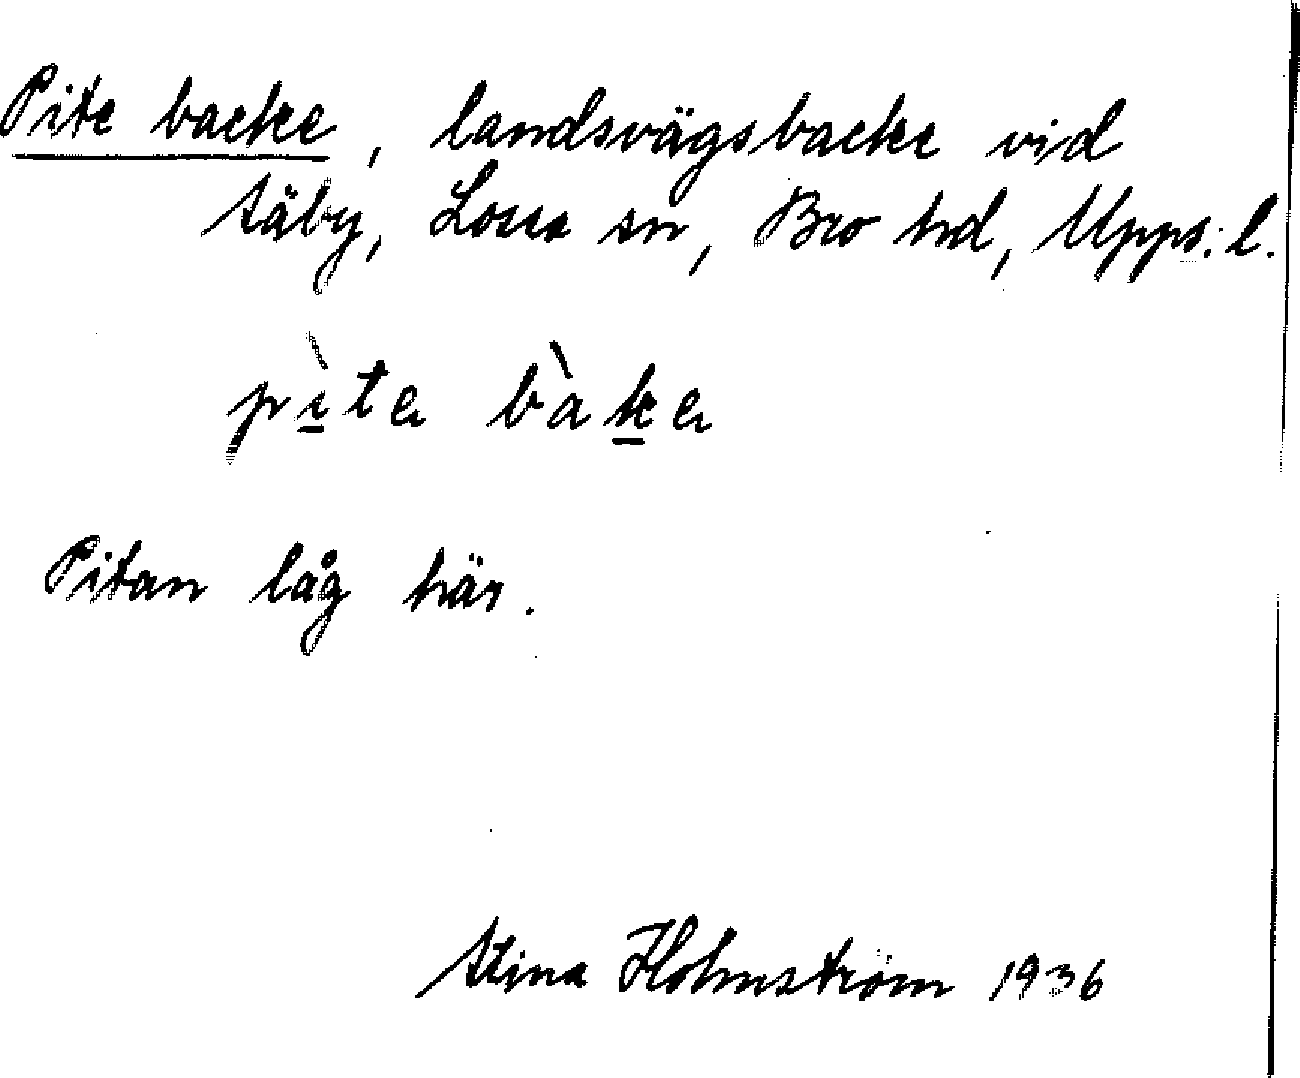 Pite backe, landsvägsbacke vid
Säby, Lossa sn, Bro hd, Upps. l.
pìte bàke
Pitan låg här.
Stina Holmström 1936